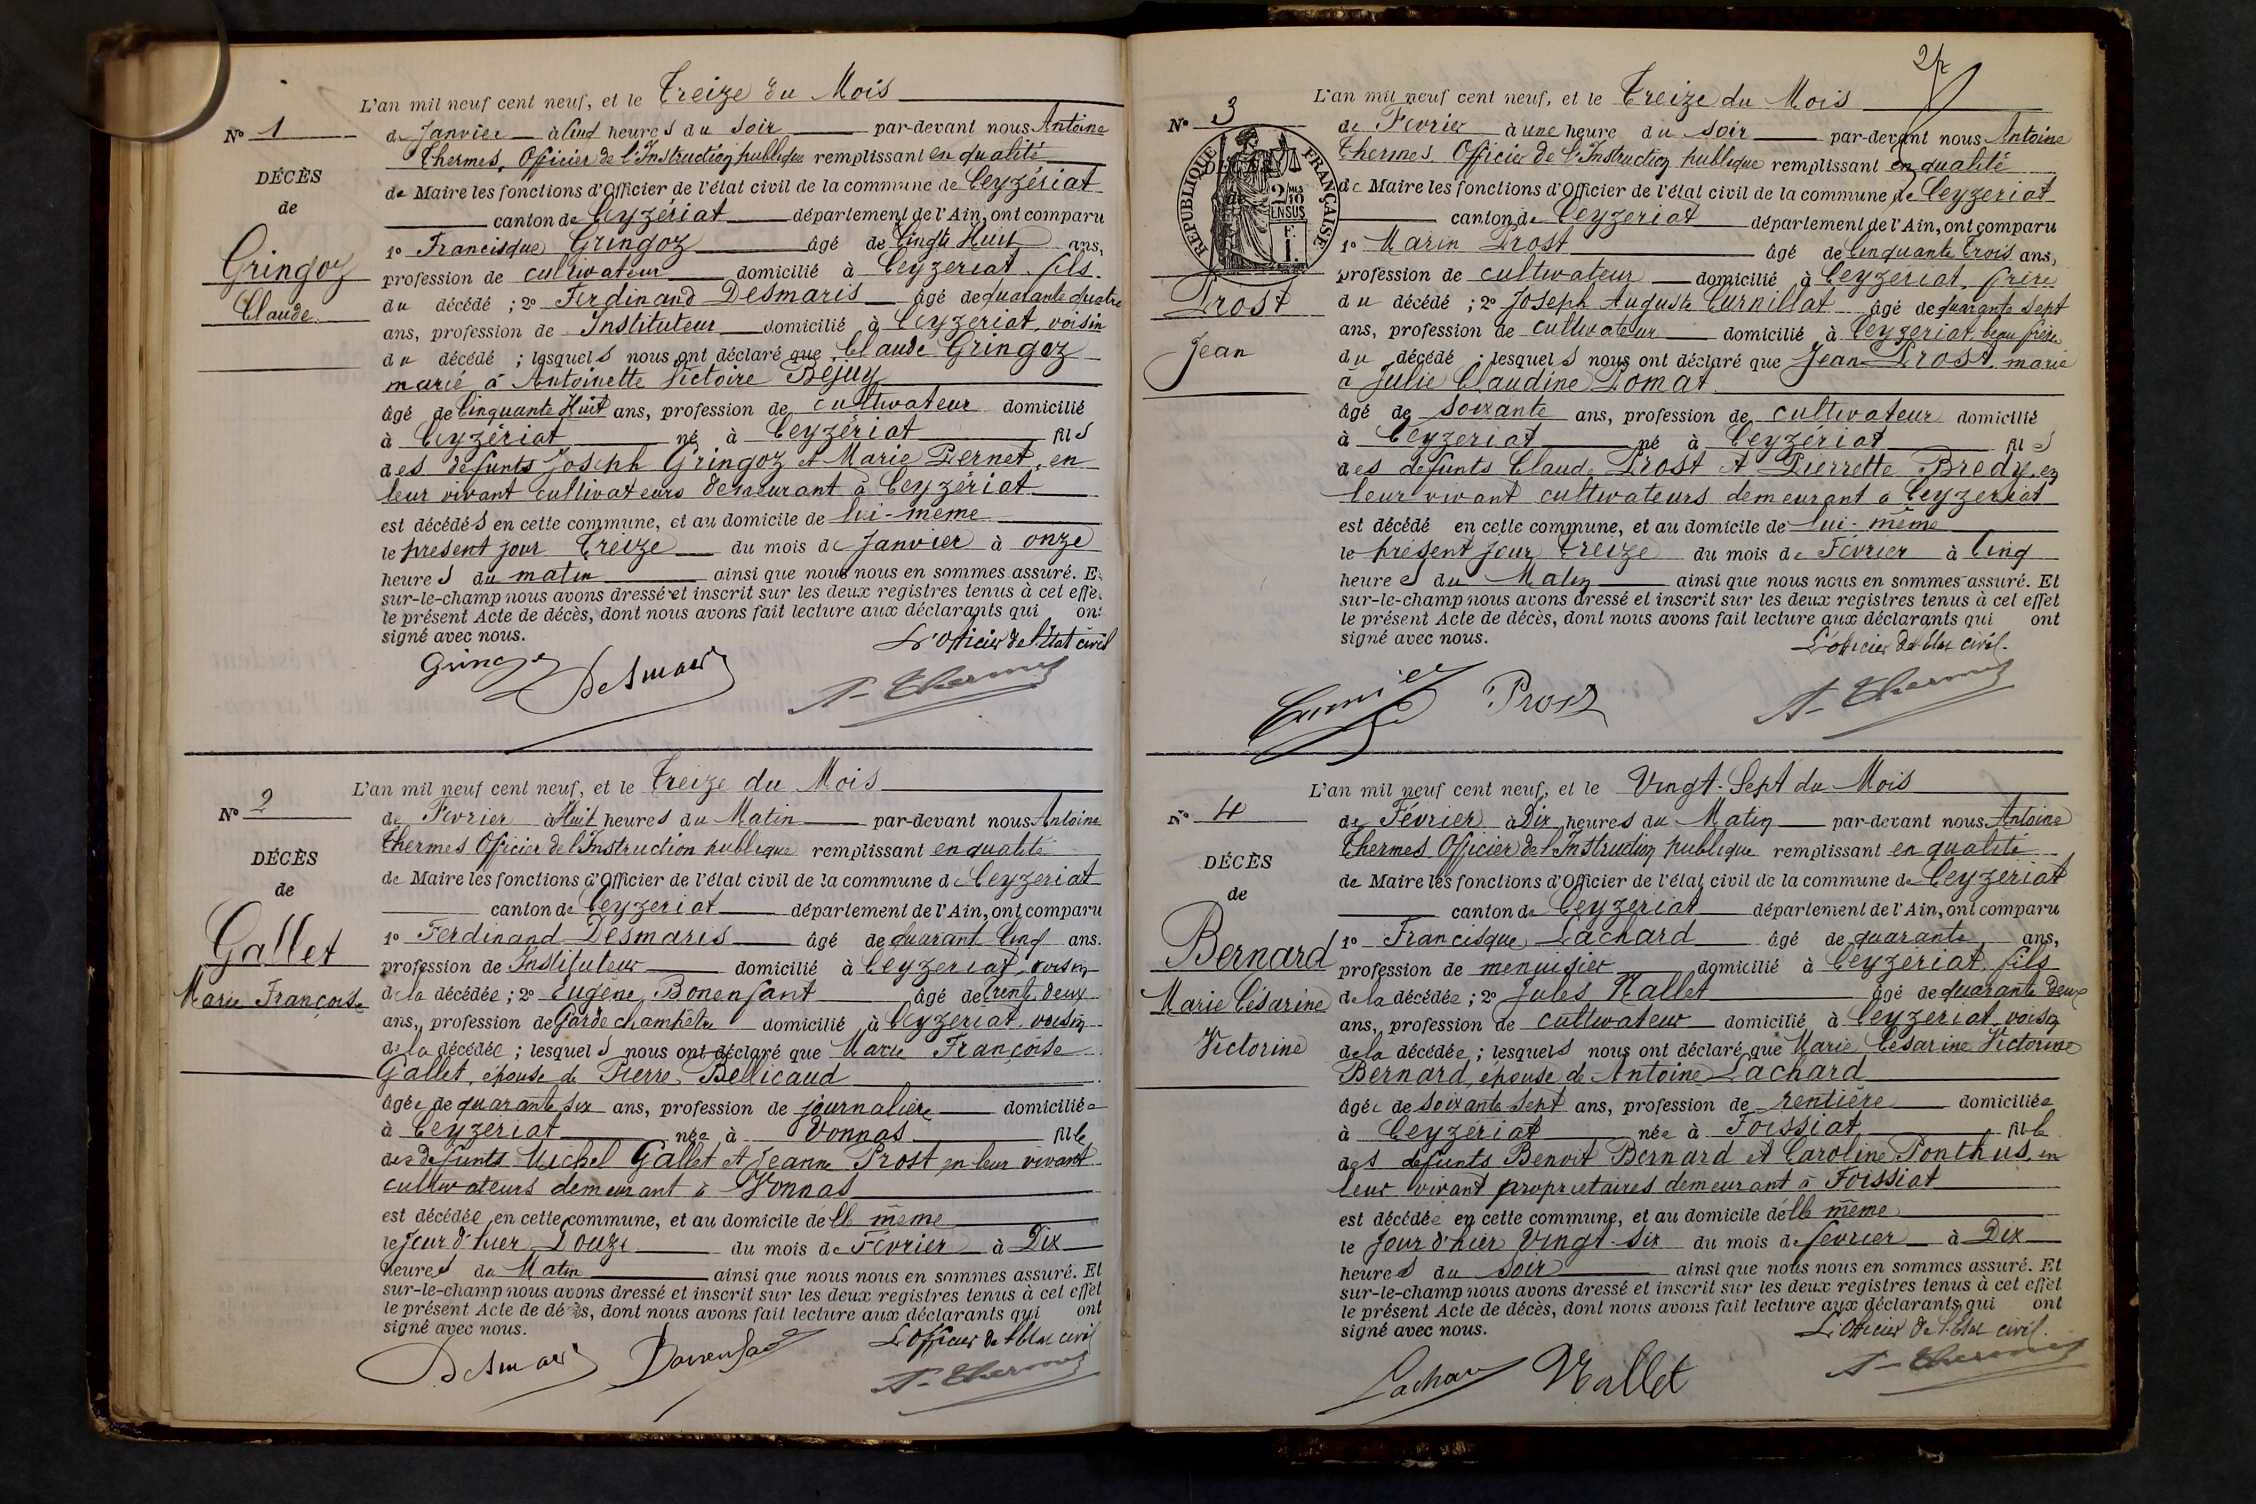 L'an mil neuf cent neuf, et le Treize du Mois
N° 1
de Janvier à Cinq heures du soir par-devant nous Antoine
Thermes, Officier de l'Instruction publique remplissant en qualité
DÉCÈS
de Maire les fonctions d'Officier de l'état civil de la commune de Ceyzériat
de
canton de Ceyzériat département de l'Ain, ont comparu
1° Francisque Gringoz âgé de Vingt Huit ans,
Gringoz
profession de cultivateur domicilié à Ceyzeriat fils
Claude
du décédé ; 2° Ferdinand Desmaris âgé de quarante quatre
ans, profession de Instituteur domicilié à Ceyzeriat, voisin
du décédé ; lesquels nous ont déclaré que Claude Gringoz
marié à Antoinette Victoire Bejuy
âgé de Cinquante Huit ans, profession de cultivateur domicilié
à Ceyzériat né à Ceyzériat fils
des défunts Joseph Gringoz et Marie Pernet, en
leur vivant cultivateurs demeurant à Ceyzériat
est décédés en cette commune, et au domicile de lui-même
le présent jour Treize du mois de Janvier à onze
heures du matin ainsi que nous nous en sommes assuré. Et
sur-le-champ nous avons dressé et inscrit sur les deux registres tenus à cet effet
le présent Acte de décès, dont nous avons fait lecture aux déclarants qui ont
signé avec nous.
L'officier de l'Etat civil
Gringoz Desmaris A. Thermes
L'an mil neuf cent neuf, et le Treize du Mois
N° 2
de Fevrier à Huit heures du Matin par-devant nous Antoine
Thermes Officier de l'Instruction publique remplissant en qualité
DÉCÈS
de Maire les fonctions d'Officier de l'état civil de la commune de Ceyzeriat
de
canton de Ceyzeriat département de l'Ain, ont comparu
Gallet
1° Ferdinand Desmaris âgé de quarant Cinq ans.
profession de Instituteur domicilié à Ceyzeriat, voisin
Marie Françoise
de la décédée ; 2° Eugène Bonenfant âgé de Trente deux
ans, profession de Garde champêtre domicilié à Ceyzeriat voisin
de la décédée ; lesquels nous ont déclaré que Marie Françoise
Gallet, épouse de Pierre Bellicaud
âgée de quarante six ans, profession de journalière domiciliée
à Ceyzeriat née à Vonnas fille
des défunts Michel Gallet et Jeanne Prost en leur vivant
cultivateurs demeurant à Vonnas
est décédée en cette commune, et au domicile d'elle même
le Jour d'hier Douze du mois de Février à Dix
heures du Matin ainsi que nous nous en sommes assuré. Et
sur-le-champ nous avons dressé et inscrit sur les deux registres tenus à cet effet
le présent Acte de décès, dont nous avons fait lecture aux déclarants qui ont
signé avec nous.
L'Officier de l'Etat civil
Desmaris Bonenfant A. Thermes
2
L'an mil neuf cent neuf, et le Treize du Mois
N° 3
de Fevrier à une heure du soir par-devant nous Antoine
Thermes Officier de l'Instruction publique remplissant en qualité
RÉPUBLIQUE FRANÇAISE
DÉCÈS
de
2/10 EN SUS
F. 1.
de Maire les fonctions d'Officier de l'état civil de la commune de Ceyzeriat
canton de Ceyzeriat département de l'Ain, ont comparu
1° Marin Prost âgé de Cinquante Trois ans,
profession de cultivateur domicilié à Ceyzeriat, frère
Prost
du décédé ; 2° Joseph Auguste Curnillat âgé de quarante sept
ans, profession de cultivateur domicilié à Ceyzeriat, beau frère
Jean
du décédé ; lesquels nous ont déclaré que Jean Prost, marié
à Julie Claudine Pomat
âgé de soixante ans, profession de cultivateur domicilié
à Ceyzeriat né à Ceyzériat fils
des défunts Claude Prost et Pierrette Bredy, en
leur vivant cultivateurs demeurant à Ceyzeriat
est décédé en cette commune, et au domicile de lui-même
le présent jour Treize du mois de Février à Cinq
heures du Matin ainsi que nous nous en sommes assuré. Et
sur-le-champ nous avons dressé et inscrit sur les deux registres tenus à cet effet
le présent Acte de décès, dont nous avons fait lecture aux déclarants qui ont
signé avec nous.
L'officier de l'Etat civil.
Prost A. Thermes
L'an mil neuf cent neuf, et le Vingt-Sept du Mois
N° 4
de Février à Dix heures du Matin par-devant nous Antoine
Thermes Officier de l'Instruction publique remplissant en qualité
DÉCÈS
de Maire les fonctions d'Officier de l'état civil de la commune de Ceyzeriat
de
canton de Ceyzeriat département de l'Ain, ont comparu
Bernard
1° Francisque Lachard âgé de quarante ans,
profession de menuisier domicilié à Ceyzeriat, fils
Marie Césarine
de la décédée ; 2° Jules Nallet âgé de quarante Deux
ans, profession de cultivateur domicilié à Ceyzeriat voisin
Victorine
de la décédée ; lesquels nous ont déclaré que Marie Césarine Victorine
Bernard, épouse de Antoine Lachard
âgée de soixante sept ans, profession de rentière domiciliée
à Ceyzériat née à Foissiat fille
des défunts Benoit Bernard et Caroline Ponthus, en
leur vivant propriétaires demeurant à Foissiat
est décédée en cette commune, et au domicile d'elle même
le Jour d'hier Vingt-Six du mois de fevrier à Dix
heures du soir ainsi que nous nous en sommes assuré. Et
sur-le-champ nous avons dressé et inscrit sur les deux registres tenus à cet effet
le présent Acte de décès, dont nous avons fait lecture aux déclarants qui ont
signé avec nous.
L'Officier de l'Etat civil.
Lachard Nallet A. Thermes